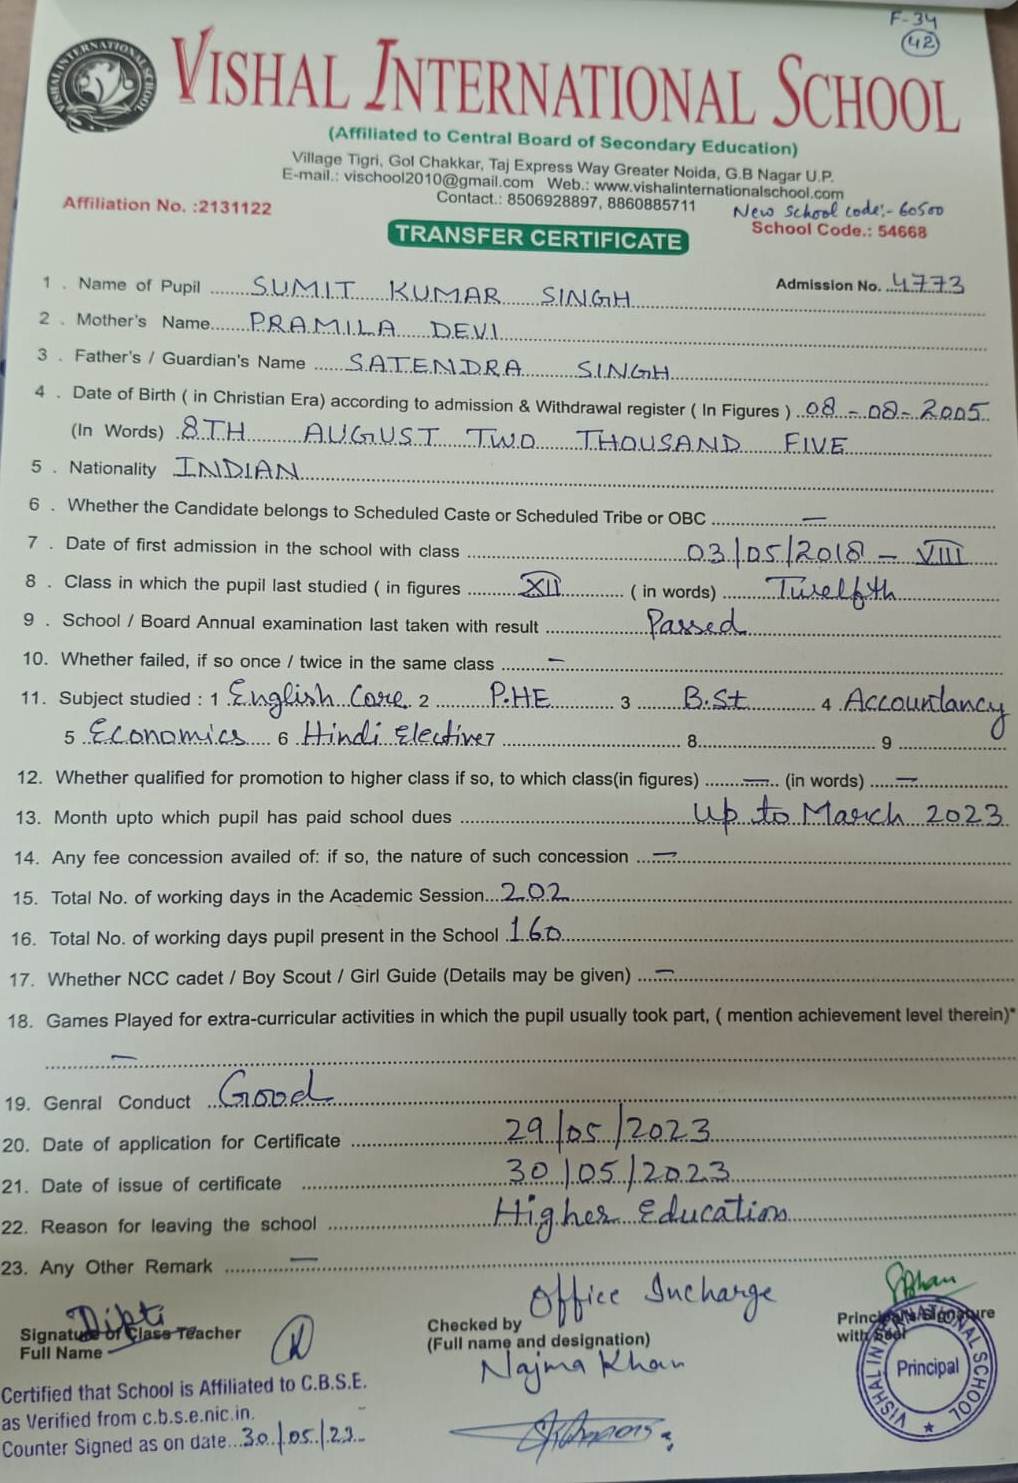 F-34
42
VISHAL INTERNATIONAL SCHOOL
VISHAL INTERNATIONAL SCHOOL
(Affiliated to Central Board of Secondary Education)
Village Tigri, Gol Chakkar, Taj Express Way Greater Noida, G.B Nagar U.P.
E-mail.: vischool2010@gmail.com Web.: www.vishalinternationalschool.com
Contact.: 8506928897, 8860885711
New School code:- 60500
Affiliation No. :2131122
School Code.: 54668
TRANSFER CERTIFICATE
Admission No. 4773
1 . Name of Pupil SUMIT KUMAR SINGH
2 . Mother's Name PRAMILA DEVI
3 . Father's / Guardian's Name SATENDRA SINGH
4 . Date of Birth ( in Christian Era) according to admission & Withdrawal register ( In Figures ) 08-08-2005
(In Words) 8TH AUGUST TWO THOUSAND FIVE
5 . Nationality INDIAN
6 . Whether the Candidate belongs to Scheduled Caste or Scheduled Tribe or OBC —
7 . Date of first admission in the school with class 03/05/2018 - VIII
8 . Class in which the pupil last studied ( in figures XII ( in words) Twelfth
9 . School / Board Annual examination last taken with result Passed
10. Whether failed, if so once / twice in the same class —
11. Subject studied : 1 English Core 2 P.HE 3 B.St 4 Accountancy
5 Economics 6 Hindi Elective 7 8 9
12. Whether qualified for promotion to higher class if so, to which class(in figures) — (in words) —
13. Month upto which pupil has paid school dues Up to March 2023
14. Any fee concession availed of: if so, the nature of such concession —
15. Total No. of working days in the Academic Session 202
16. Total No. of working days pupil present in the School 160
17. Whether NCC cadet / Boy Scout / Girl Guide (Details may be given) —
18. Games Played for extra-curricular activities in which the pupil usually took part, ( mention achievement level therein)*
—
19. Genral Conduct Good
20. Date of application for Certificate 29/05/2023
21. Date of issue of certificate 30/05/2023
22. Reason for leaving the school Higher Education
23. Any Other Remark —
Dipti
Office Incharge
Signature of Class Teacher
Full Name
Checked by
(Full name and designation)
Najma Khan
Principal's Signature
with Seal
VISHAL INTERNATIONAL SCHOOL
Principal
VISHAL INTERNATIONAL SCHOOL
Certified that School is Affiliated to C.B.S.E.
as Verified from c.b.s.e.nic.in.
Counter Signed as on date 30/05/23